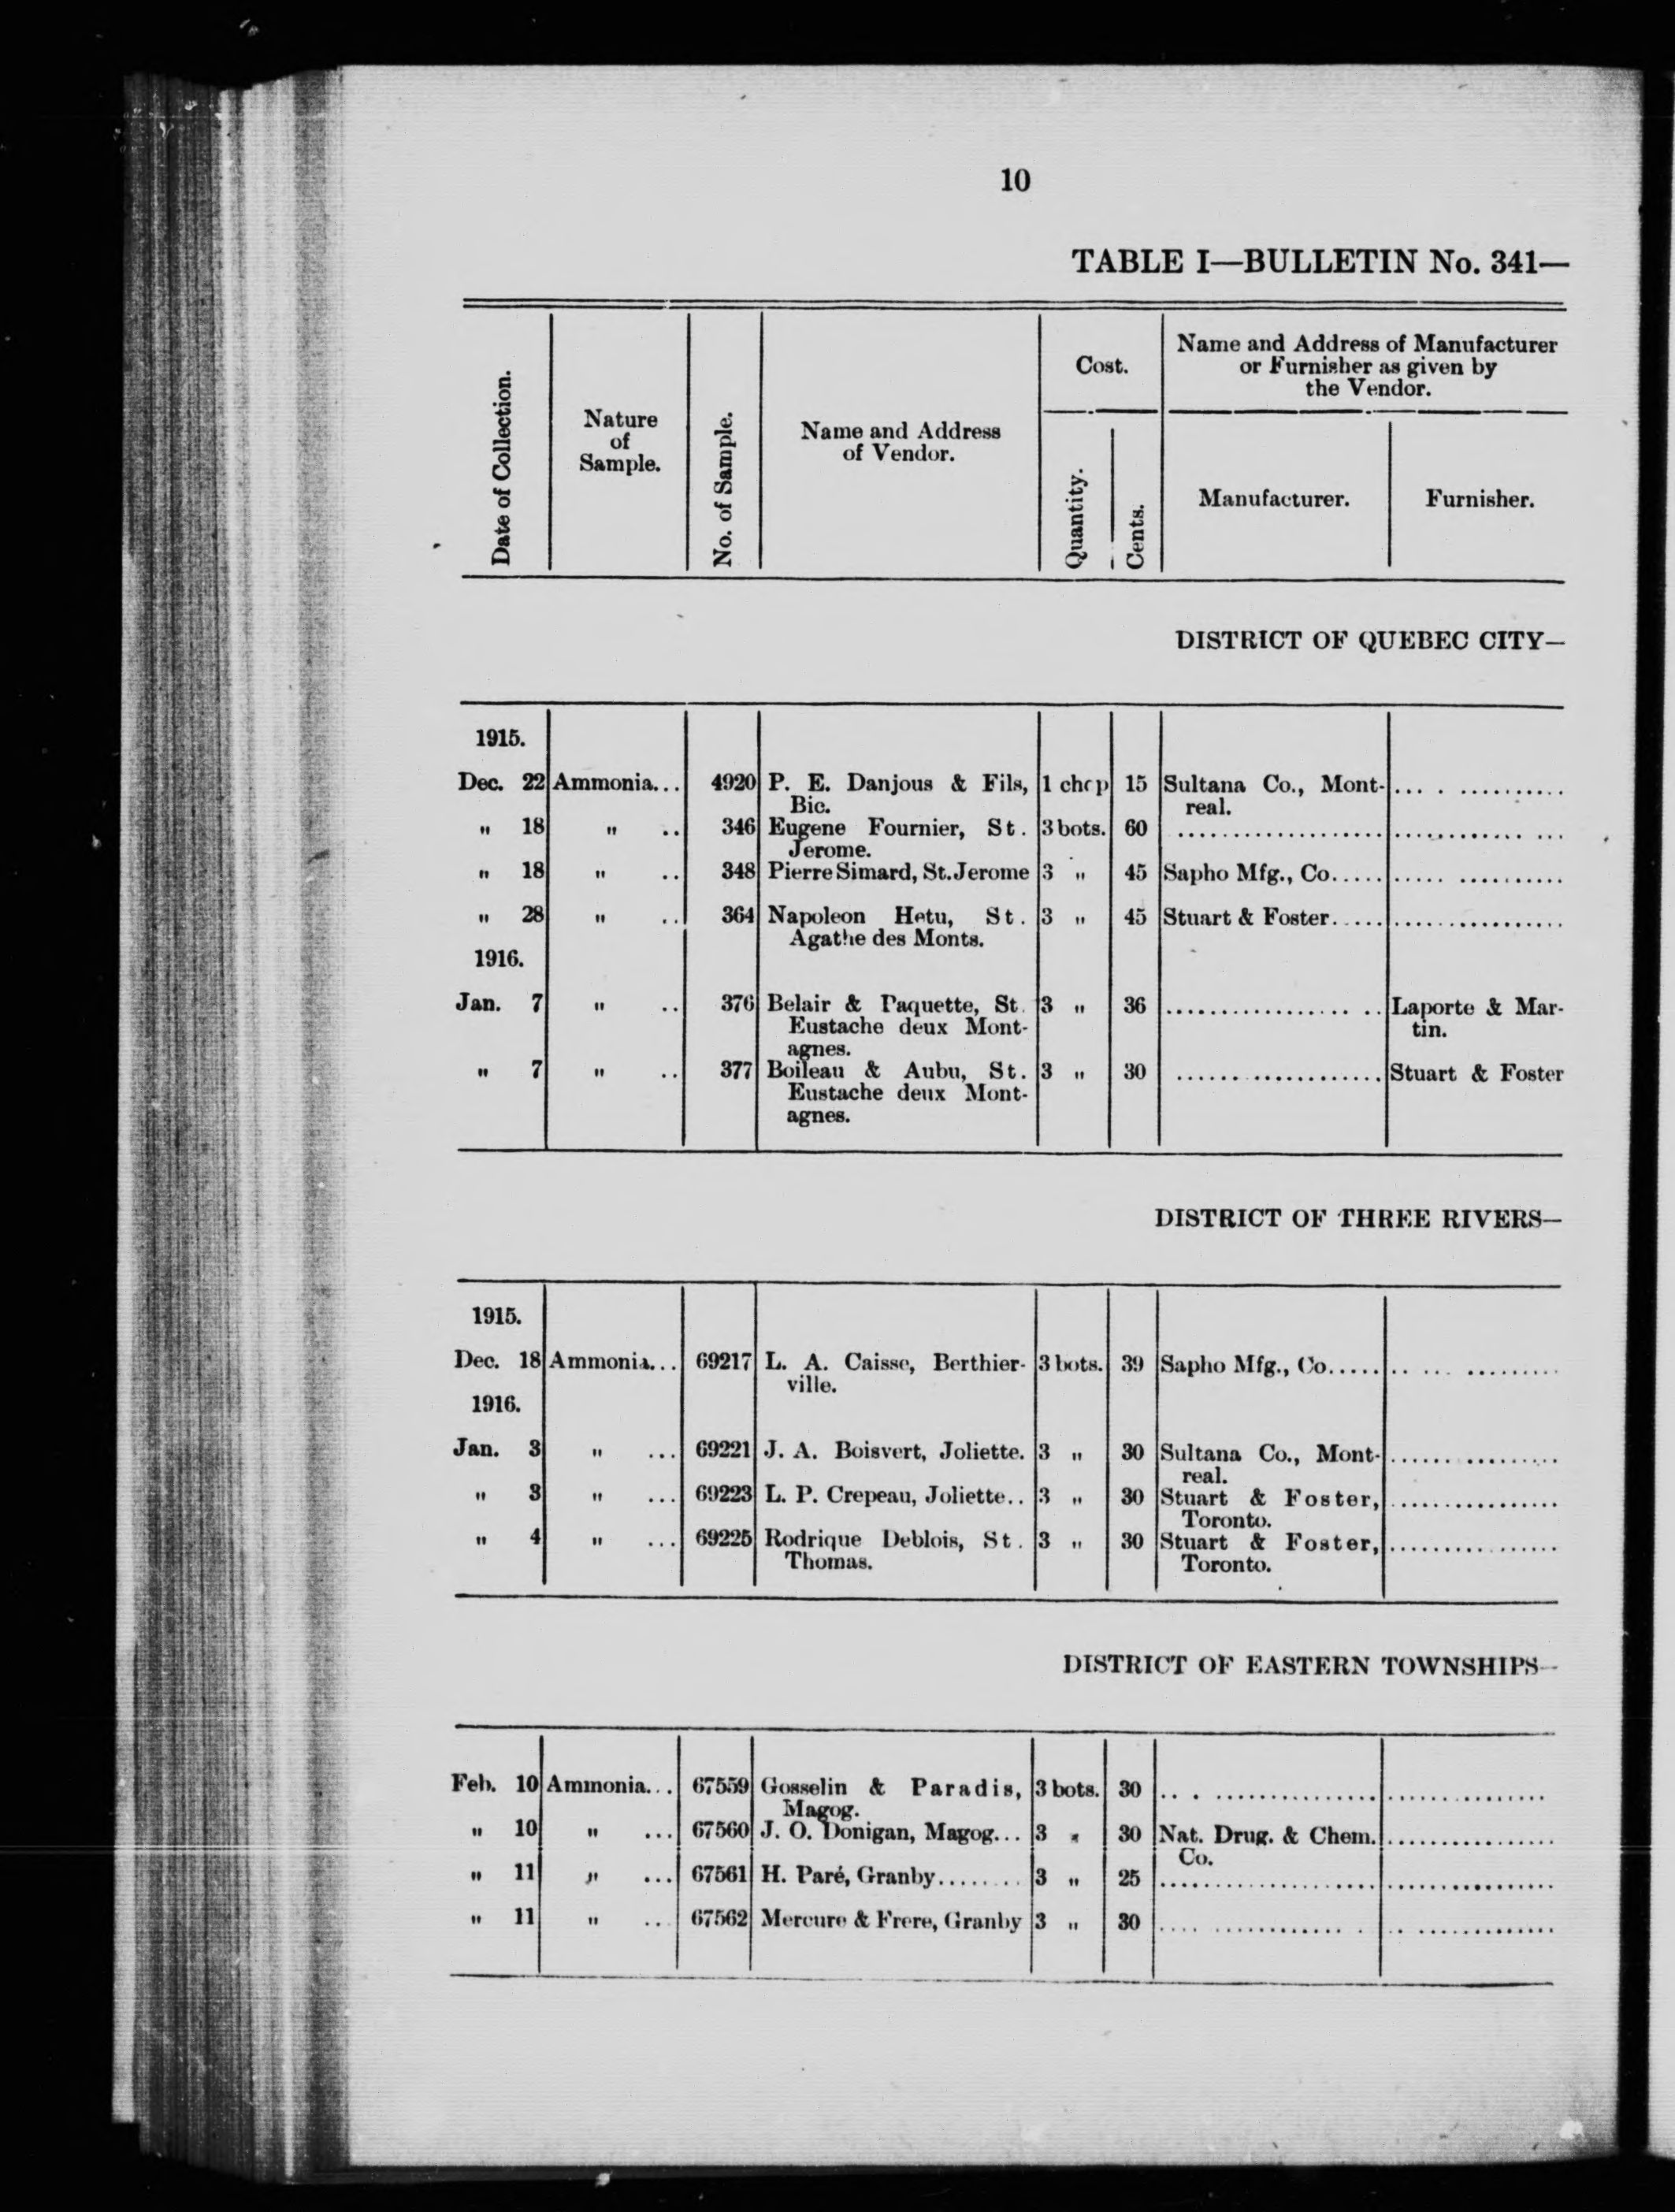 10
TABLE I—BULLETIN No. 341—
Date of Collection.
Nature
of
Sample.
No. of Sample.
Name and Address
of Vendor.
Cost.
Quantity.
Cents.
Name and Address of Manufacturer
or Furnisher as given by
the Vendor.
Manufacturer.
Furnisher.
DISTRICT OF QUEBEC CITY—
1915.
Dec. 22 Ammonia... 4920 P. E. Danjous & Fils, 1 15 Sultana Co., Mont- ..............
Bic. real.
" 18 " .. 346 Eugene Fournier, St. 3 bots. 60 .................... ..............
Jerome.
" 18 " .. 348 Pierre Simard, St. Jerome 3 " 45 Sapho Mfg., Co..... ..............
" 28 " .. 364 Napoleon Hetu, St. 3 " 45 Stuart & Foster..... ..............
Agathe des Monts.
1916.
Jan. 7 " .. 376 Belair & Paquette, St. 3 " 36 .................... Laporte & Mar-
Eustache deux Mont- tin.
agnes.
" 7 " .. 377 Boileau & Aubu, St. 3 " 30 .................... Stuart & Foster
Eustache deux Mont-
agnes.
DISTRICT OF THREE RIVERS—
1915.
Dec. 18 Ammonia... 69217 L. A. Caisse, Berthier- 3 bots. 39 Sapho Mfg., Co..... ..............
ville.
1916.
Jan. 3 " ... 69221 J. A. Boisvert, Joliette. 3 " 30 Sultana Co., Mont- ..............
real.
" 3 " ... 69223 L. P. Crepeau, Joliette.. 3 " 30 Stuart & Foster, ..............
Toronto.
" 4 " ... 69225 Rodrique Deblois, St. 3 " 30 Stuart & Foster, ..............
Thomas. Toronto.
DISTRICT OF EASTERN TOWNSHIPS—
Feb. 10 Ammonia... 67559 Gosselin & Paradis, 3 bots. 30 .................... ..............
Magog.
" 10 " ... 67560 J. O. Donigan, Magog... 3 " 30 Nat. Drug. & Chem. ..............
Co.
" 11 " ... 67561 H. Paré, Granby........ 3 " 25 .................... ..............
" 11 " .. 67562 Mercure & Frere, Granby 3 " 30 .................... ..............